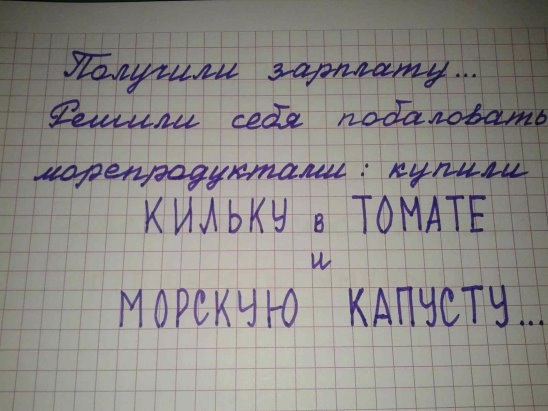 Получили зарплату...
Решили себя побаловать
морепродуктами: купили
КИЛЬКУ в ТОМАТЕ
и
МОРСКУЮ КАПУСТУ...